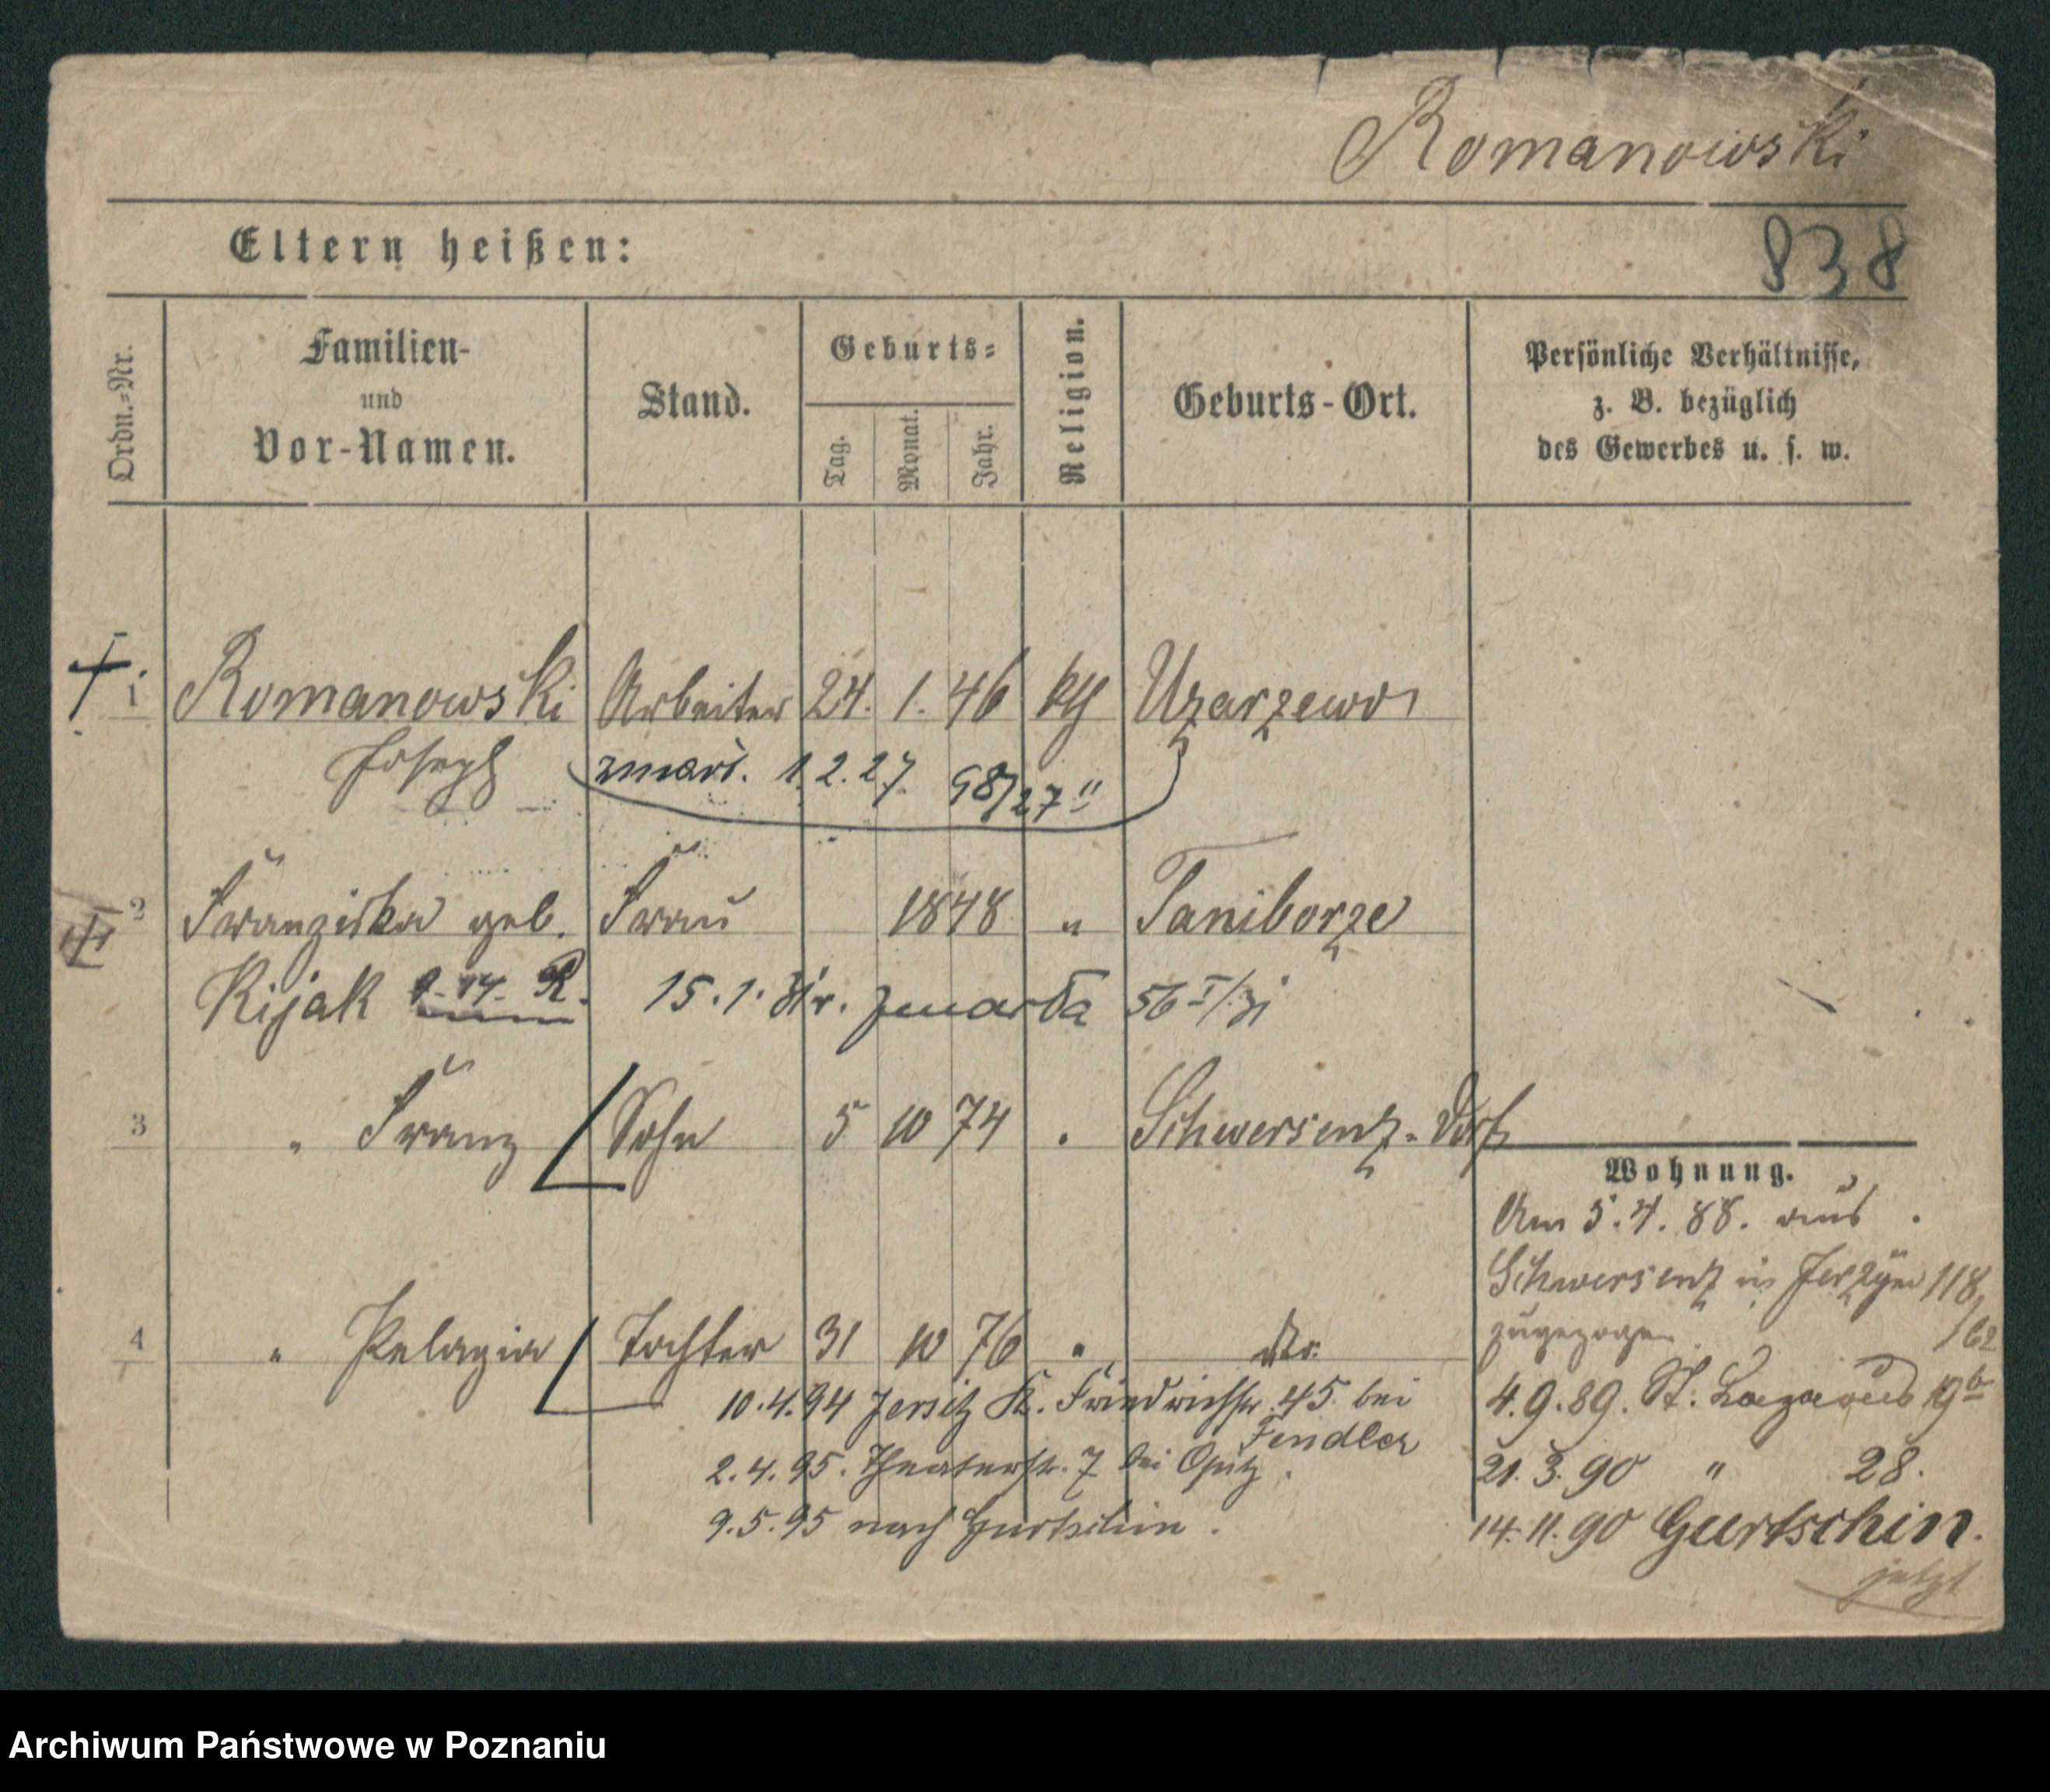 Romanowski
838
Eltern heißen:
Ordn.-Nr.
Familien-
und
Vor-Namen.
Stand.
Geburts-
Tag.
Monat.
Jahr.
Religion.
Geburts-Ort.
Persönliche Verhältnisse,
z. B. bezüglich
des Gewerbes u. s. w.
1 Romanowski Arbeiter 24. 1. 46 kth Uzarzewo
Joseph zmarł. 1.2.27 98/27 II
2 Franziska geb. Frau 1848 " Taniborze
Kijak R. 15.1. 31 r. zmarła 56 I/31
3 " Franz Sohn 5 10 74 " Schwersenz-Dorf
4 " Pelagia Tochter 31 10 76 " dto.
10.4.94 Jersitz K. Friedrichstr. 45 bei
Fendler
2.4.95. Theaterstr. 7 bei Opitz.
9.5.95 nach Gurtschin.
Wohnung.
Am 5.4.88. aus
Schwersenz in Jerzyce 118/62
zugezogen
4.9.89. St. Lazarus 19b
21.3.90 " 28.
14.11.90 Gurtschin.
jetzt
Archiwum Państwowe w Poznaniu